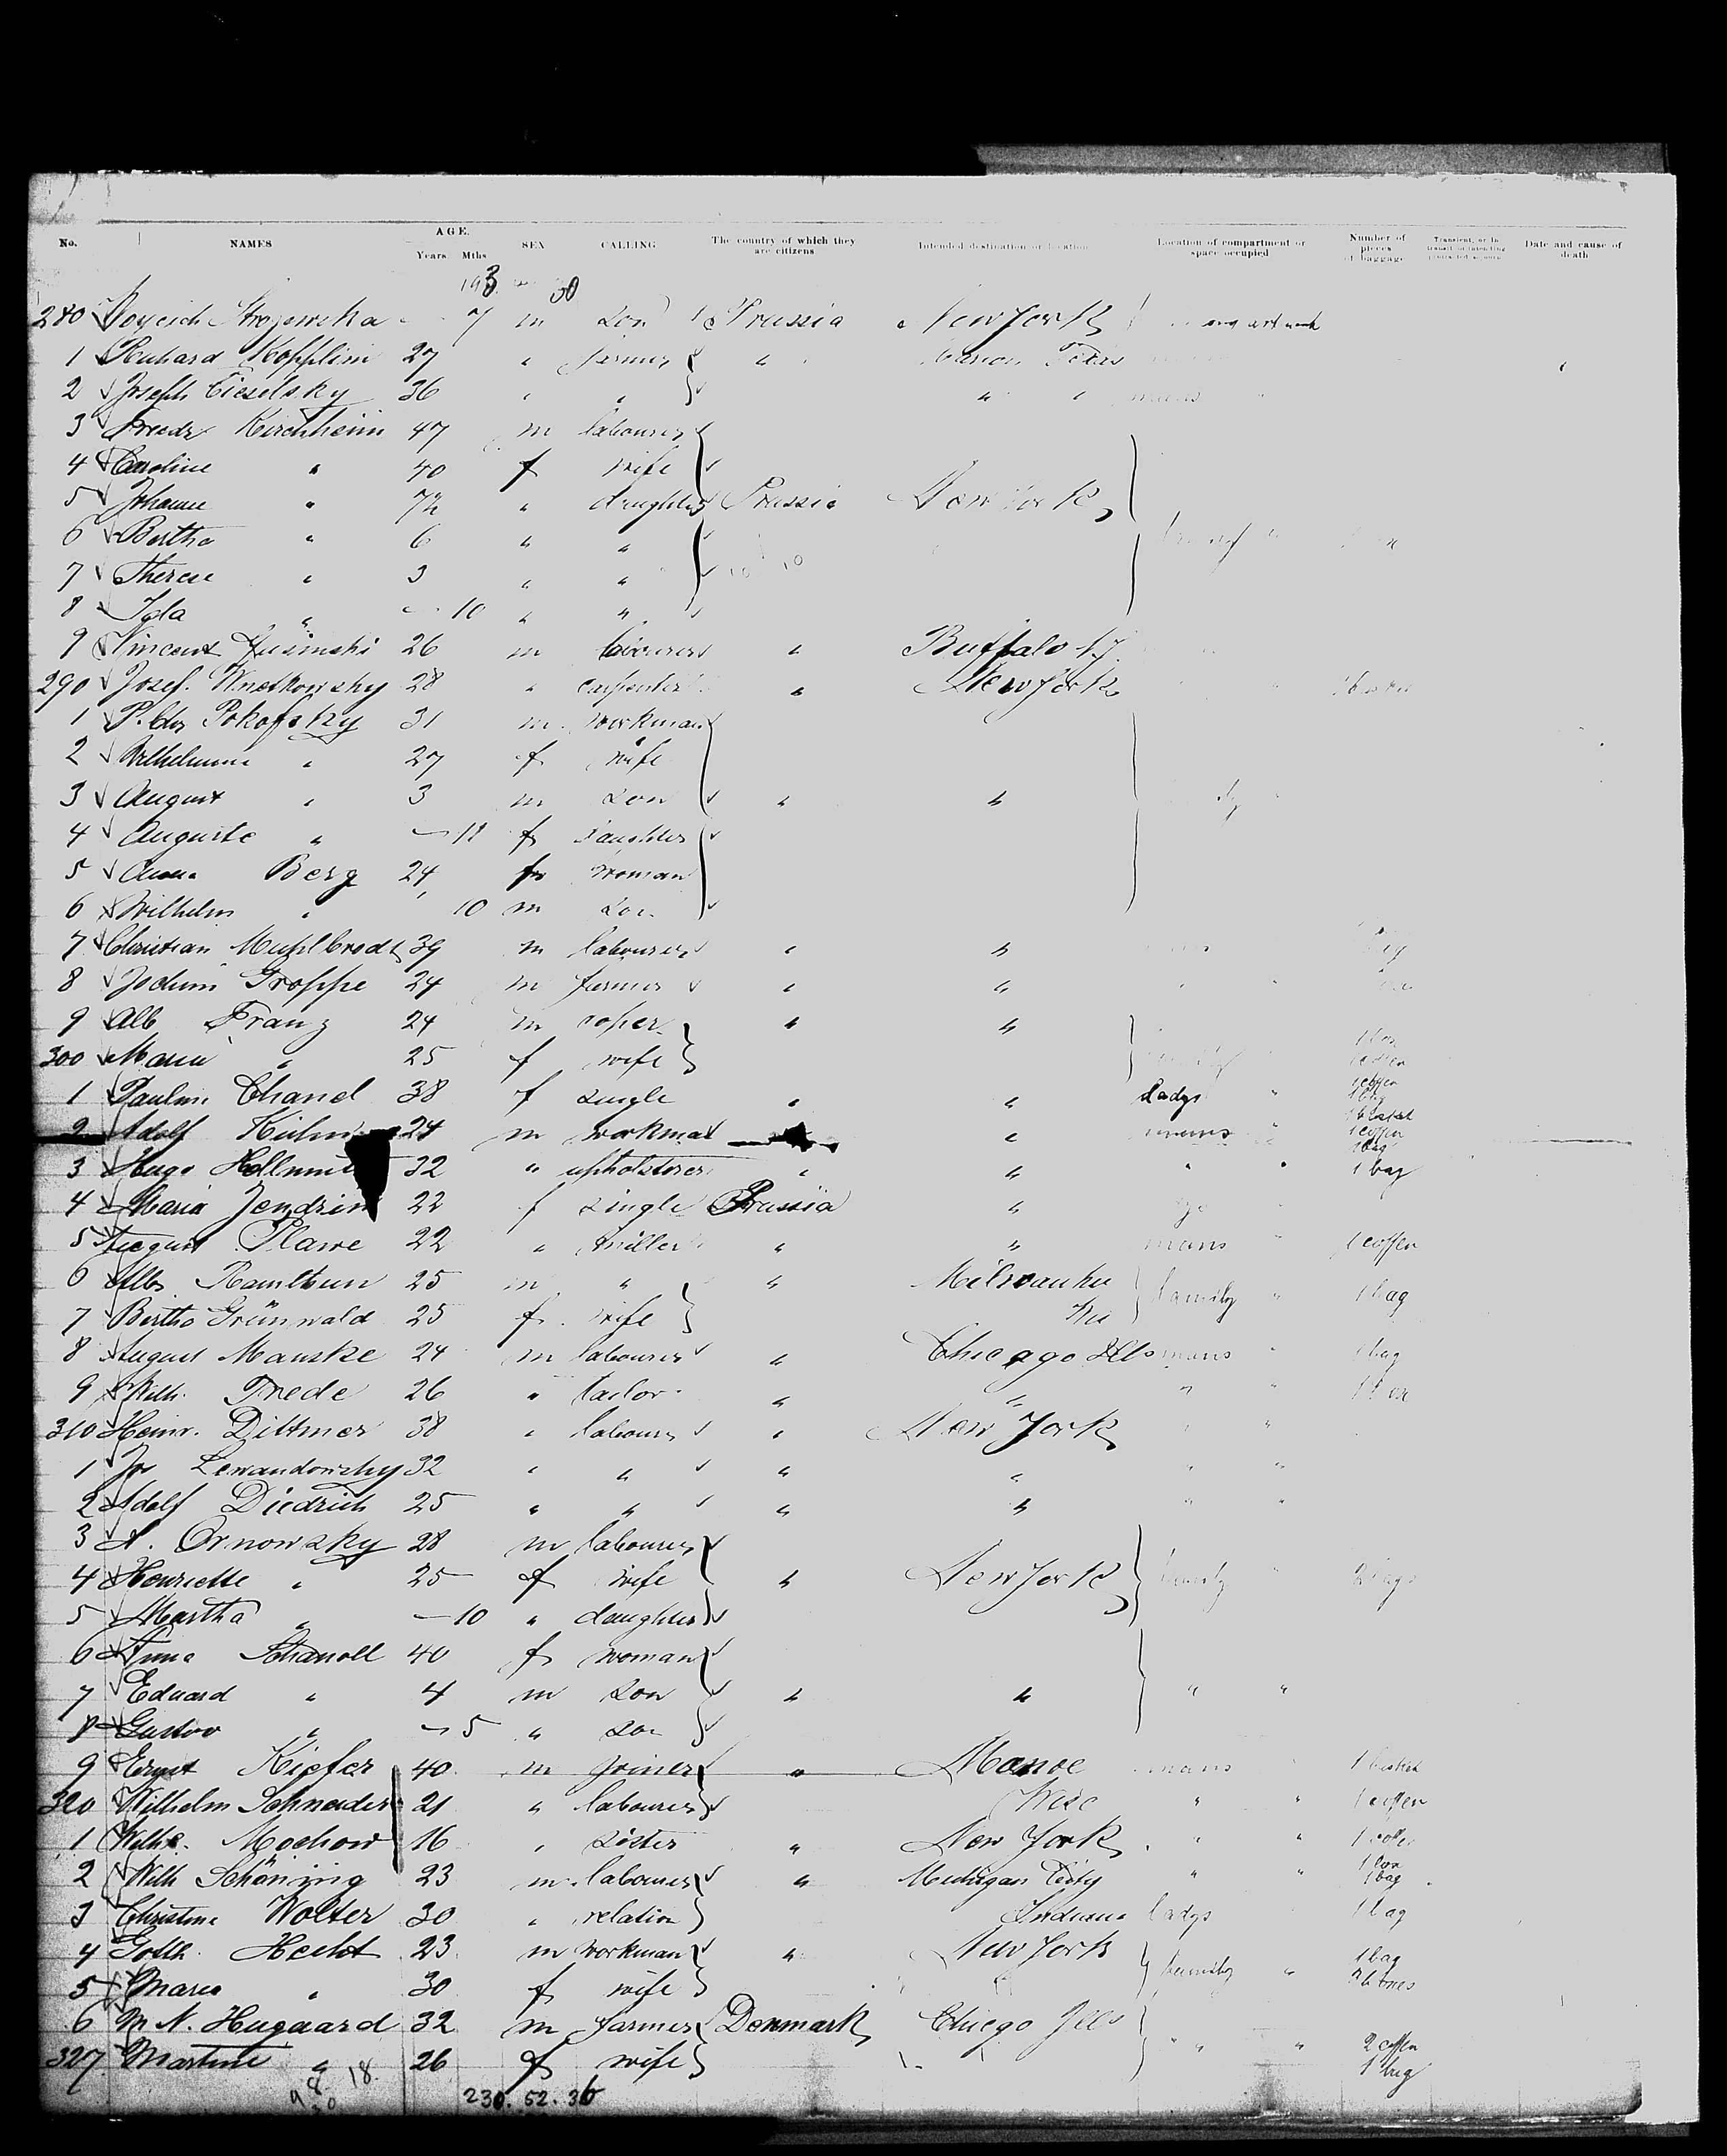 No. NAMES AGE. Years Mths SEX CALLING The country of which they are citizens Intended destination or location Location of compartment or space occupied Number of pieces of baggage Transient, or in transit or intending protracted sojourn Date and cause of death
280 7 m son Prussia New York
1 Richard Kopplin 27 " farmer " Texas
2 Joseph Cieselsky 36 " " " "
3 Friedr Kirchheim 47 m labourer
4 Caroline " 40 f wife
5 Johanne " 7½ " daughter Prussia New York
6 Bertha " 6 " "
7 Therese " 3 " "
8 Ida " - 10 " "
9 Vincent 26 m labourer " Buffalo N.Y.
290 Josef. 28 " carpenter " New York
1 Pokofsky 31 m workman
2 Wilhelmine " 27 f wife
3 August " 3 m son " "
4 Auguste " - 11 f daughter
5 Anna Berg 24 f woman
6 Wilhelm " 10 m son
7 Christian Muhlbrodt 39 m labourer " "
8 Jochim Groppe 24 m farmer " "
9 Alb Franz 24 m coper " "
300 Maria " 25 f wife
1 Pauline Chand 38 f single " " ladys "
2 Adolf 24 m workman " 1 coffer 1 bag
3 Hugo 32 " upholsterer " " " " 1 bag
4 Maria 22 f single Prussia "
5 August Plawe 22 " miller " " mans 1 coffer
6 Alb. Ramthun 25 m " " Milwaukee family " 1 bag
7 Bertha Grünwald 25 f wife Wis
8 August Manske 24 m labourer " Chicago Ills mans " 1 bag
9 Wilh. Trede 26 " tailor " " " "
310 Heinr. Dittmer 38 " labourer " New York " "
1 Jos Lewandowsky 32 " " " " " "
2 Adolf Diedrich 25 " " " " " "
3 A. Ornowsky 28 m labourer
4 Henriette " 25 f wife " New York family " 2 bags
5 Martha " - 10 " daughter
6 Anna Schanoll 40 f woman
7 Eduard " 4 m son " " " "
8 Gustav " - 5 " son
9 Ernst Kiefer 40 m joiner " mans " 1 basket
320 Wilhelm Schneider 21 " labourer Wisc " " 1 coffer
1 Wilhe. Mochow 16 " sister " New York " " 1 coffer
2 Wilh Schöning 23 m labourer " Michigan City " " 1 box 1 bag
3 Christine Wolter 30 " relation Indiana ladys 1 bag
4 Gotth. Hecht 23 m workman " New York family " 1 bag
5 Maria " 30 f wife
6 M N. Hugaard 32 m farmer Denmark Chicago Ills
327 Martine " 26 f wife " " 2 coffer 1 bag
18. 230. 52. 36